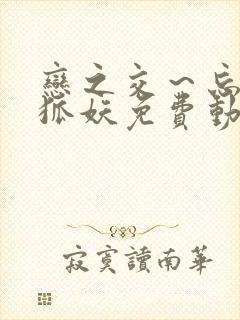 戀之交一忘
狐妖免費動
寂寞讀南華